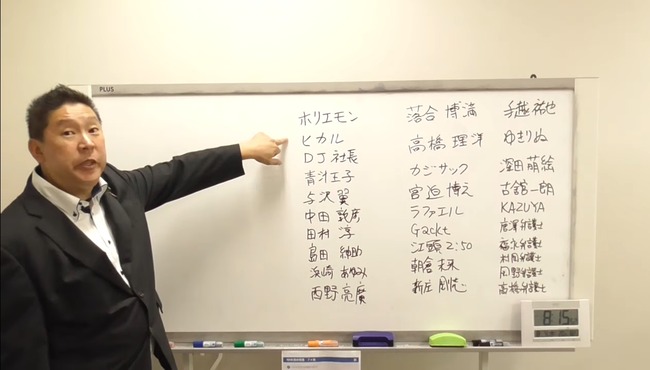 PLUS
ホリエモン
ヒカル
DJ社長
青汁王子
与沢翼
中田敦彦
田村 淳
島田 紳助
浜崎 あゆみ
西野亮廣
落合 博満
高橋 理洋
カジサック
宮迫 博之
ラファエル
Gackt
江頭2:50
朝倉 未来
新庄 剛志
手越 祐也
ゆきりぬ
深田 萌絵
古舘一朗
KAZUYA
唐澤弁護士
福永弁護士
村岡弁護士
岡野弁護士
高橋弁護士